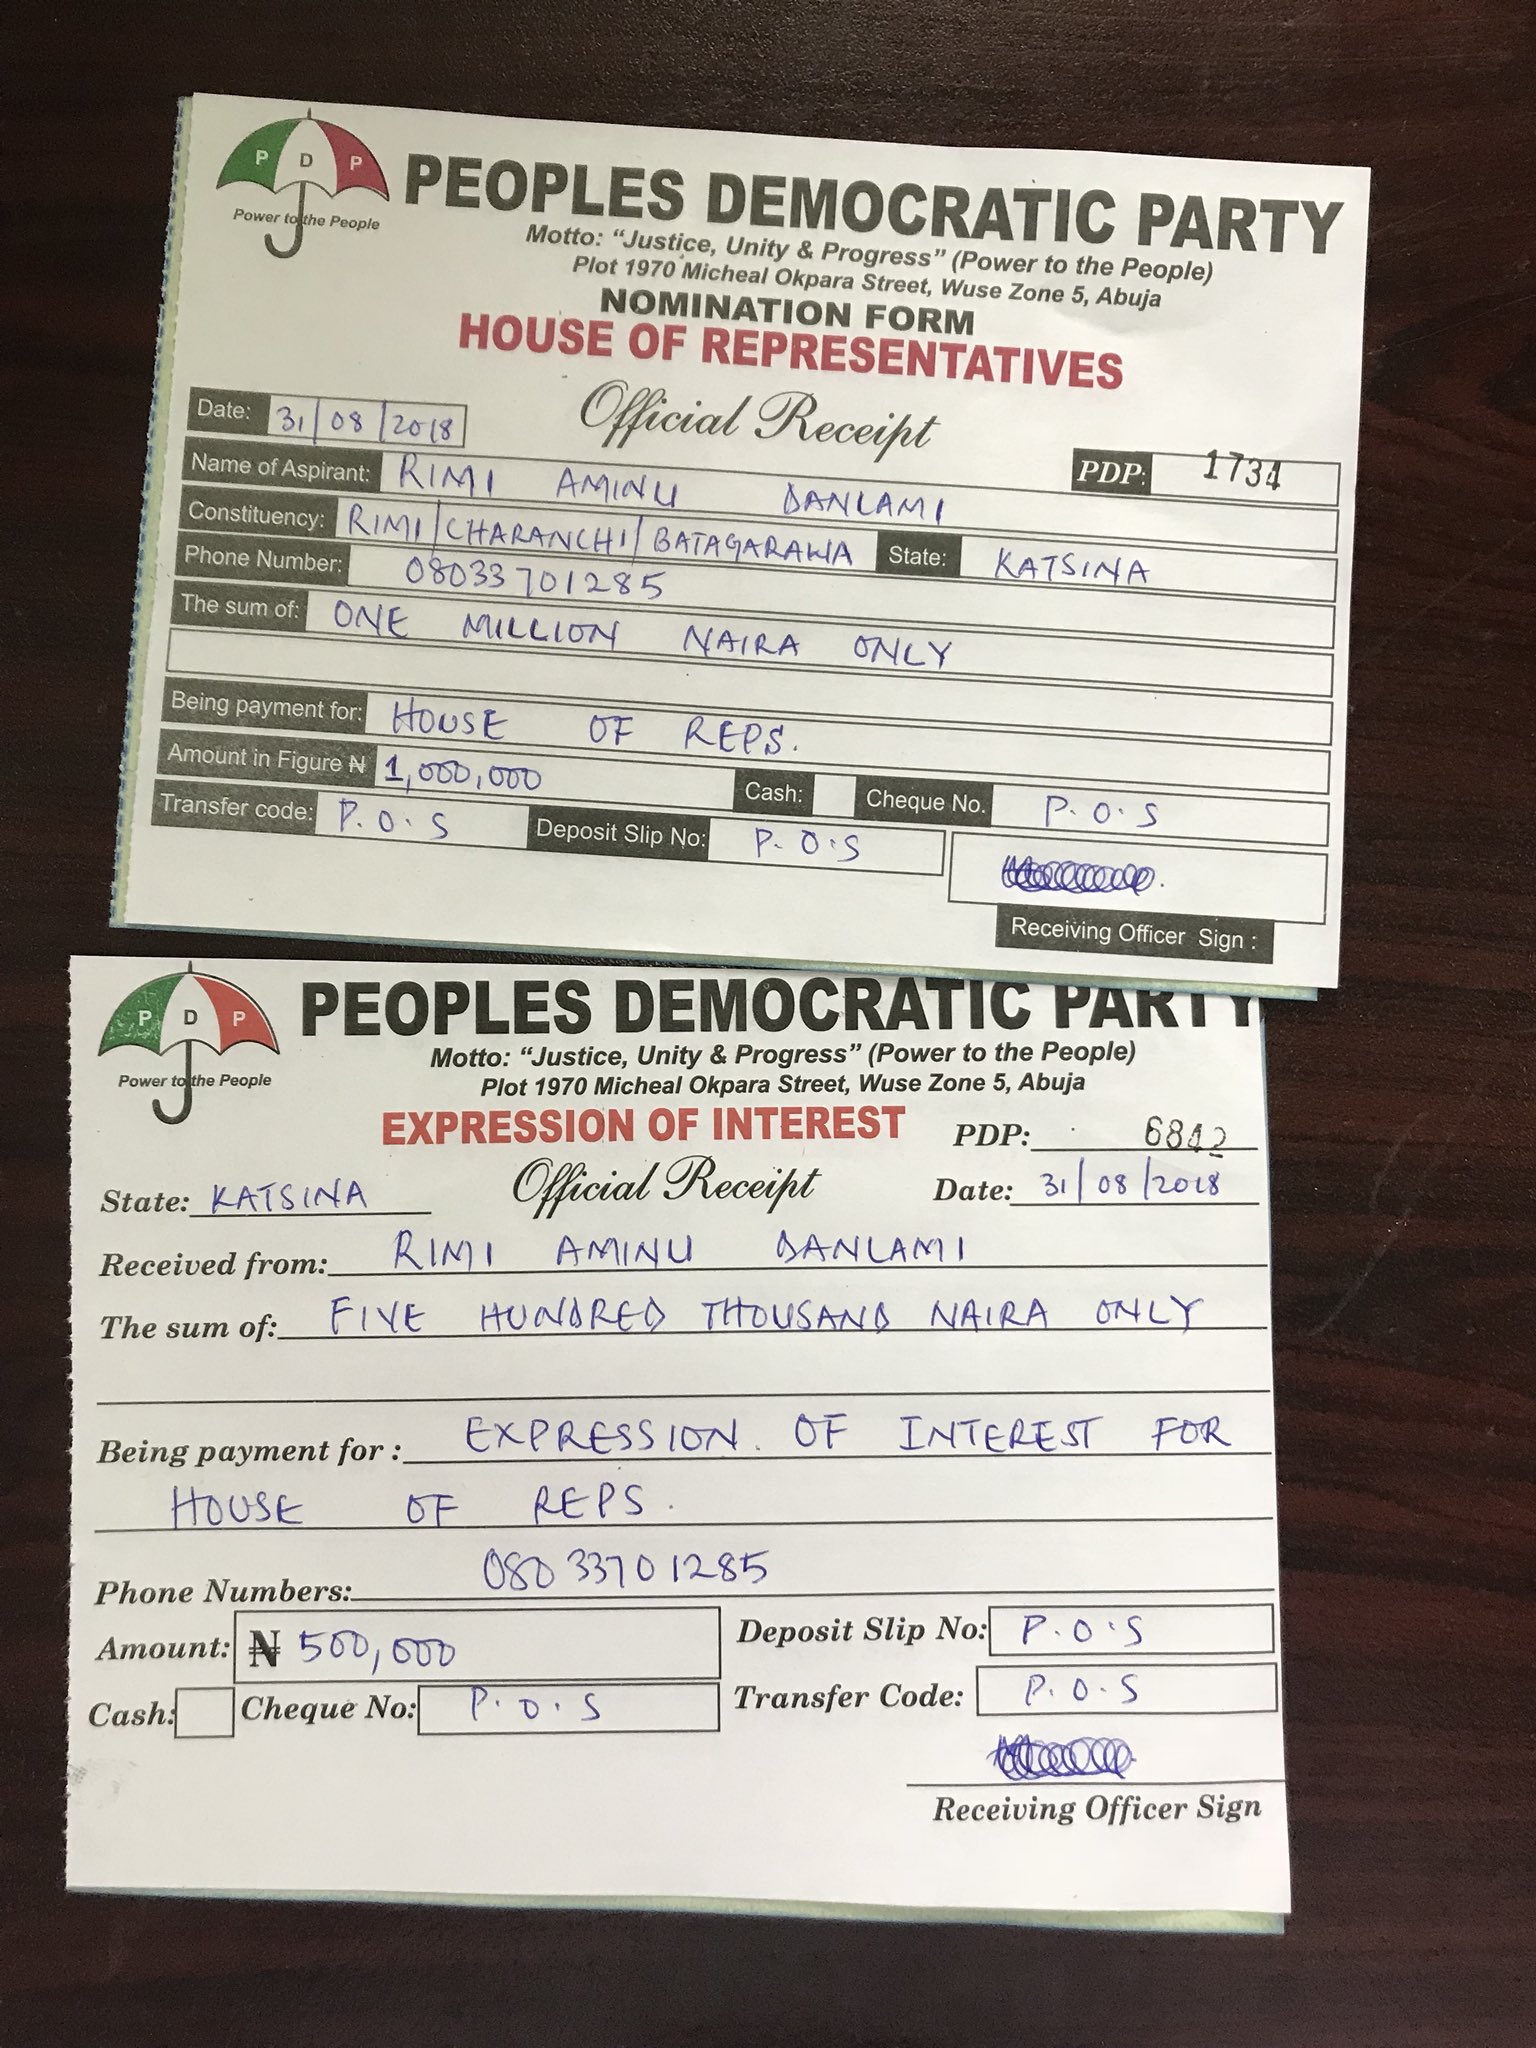 P D P
Power to the People
PEOPLES DEMOCRATIC PARTY
Motto: "Justice, Unity & Progress" (Power to the People)
Plot 1970 Micheal Okpara Street, Wuse Zone 5, Abuja
NOMINATION FORM
HOUSE OF REPRESENTATIVES
Date: 31/08/2018
Official Receipt
PDP: 1734
Name of Aspirant: RIMI AMINU DANLAMI
Constituency: RIMI/CHARANCHI/BATAGARAWA State: KATSINA
Phone Number: 08033701285
The sum of: ONE MILLION NAIRA ONLY
Being payment for: HOUSE OF REPS.
Amount in Figure ₦ 1,000,000 Cash: Cheque No. P.O.S
Transfer code: P.O.S Deposit Slip No: P.O.S
Receiving Officer Sign :
P D P
Power to the People
PEOPLES DEMOCRATIC PARTY
Motto: "Justice, Unity & Progress" (Power to the People)
Plot 1970 Micheal Okpara Street, Wuse Zone 5, Abuja
EXPRESSION OF INTEREST
PDP: 6842
State: KATSINA Official Receipt Date: 31/08/2018
Received from: RIMI AMINU DANLAMI
The sum of: FIVE HUNDRED THOUSAND NAIRA ONLY
Being payment for : EXPRESSION. OF INTEREST FOR
HOUSE OF REPS.
Phone Numbers: 08033701285
Amount: ₦ 500,000 Deposit Slip No: P.O.S
Cash: Cheque No: P.O.S Transfer Code: P.O.S
Receiving Officer Sign